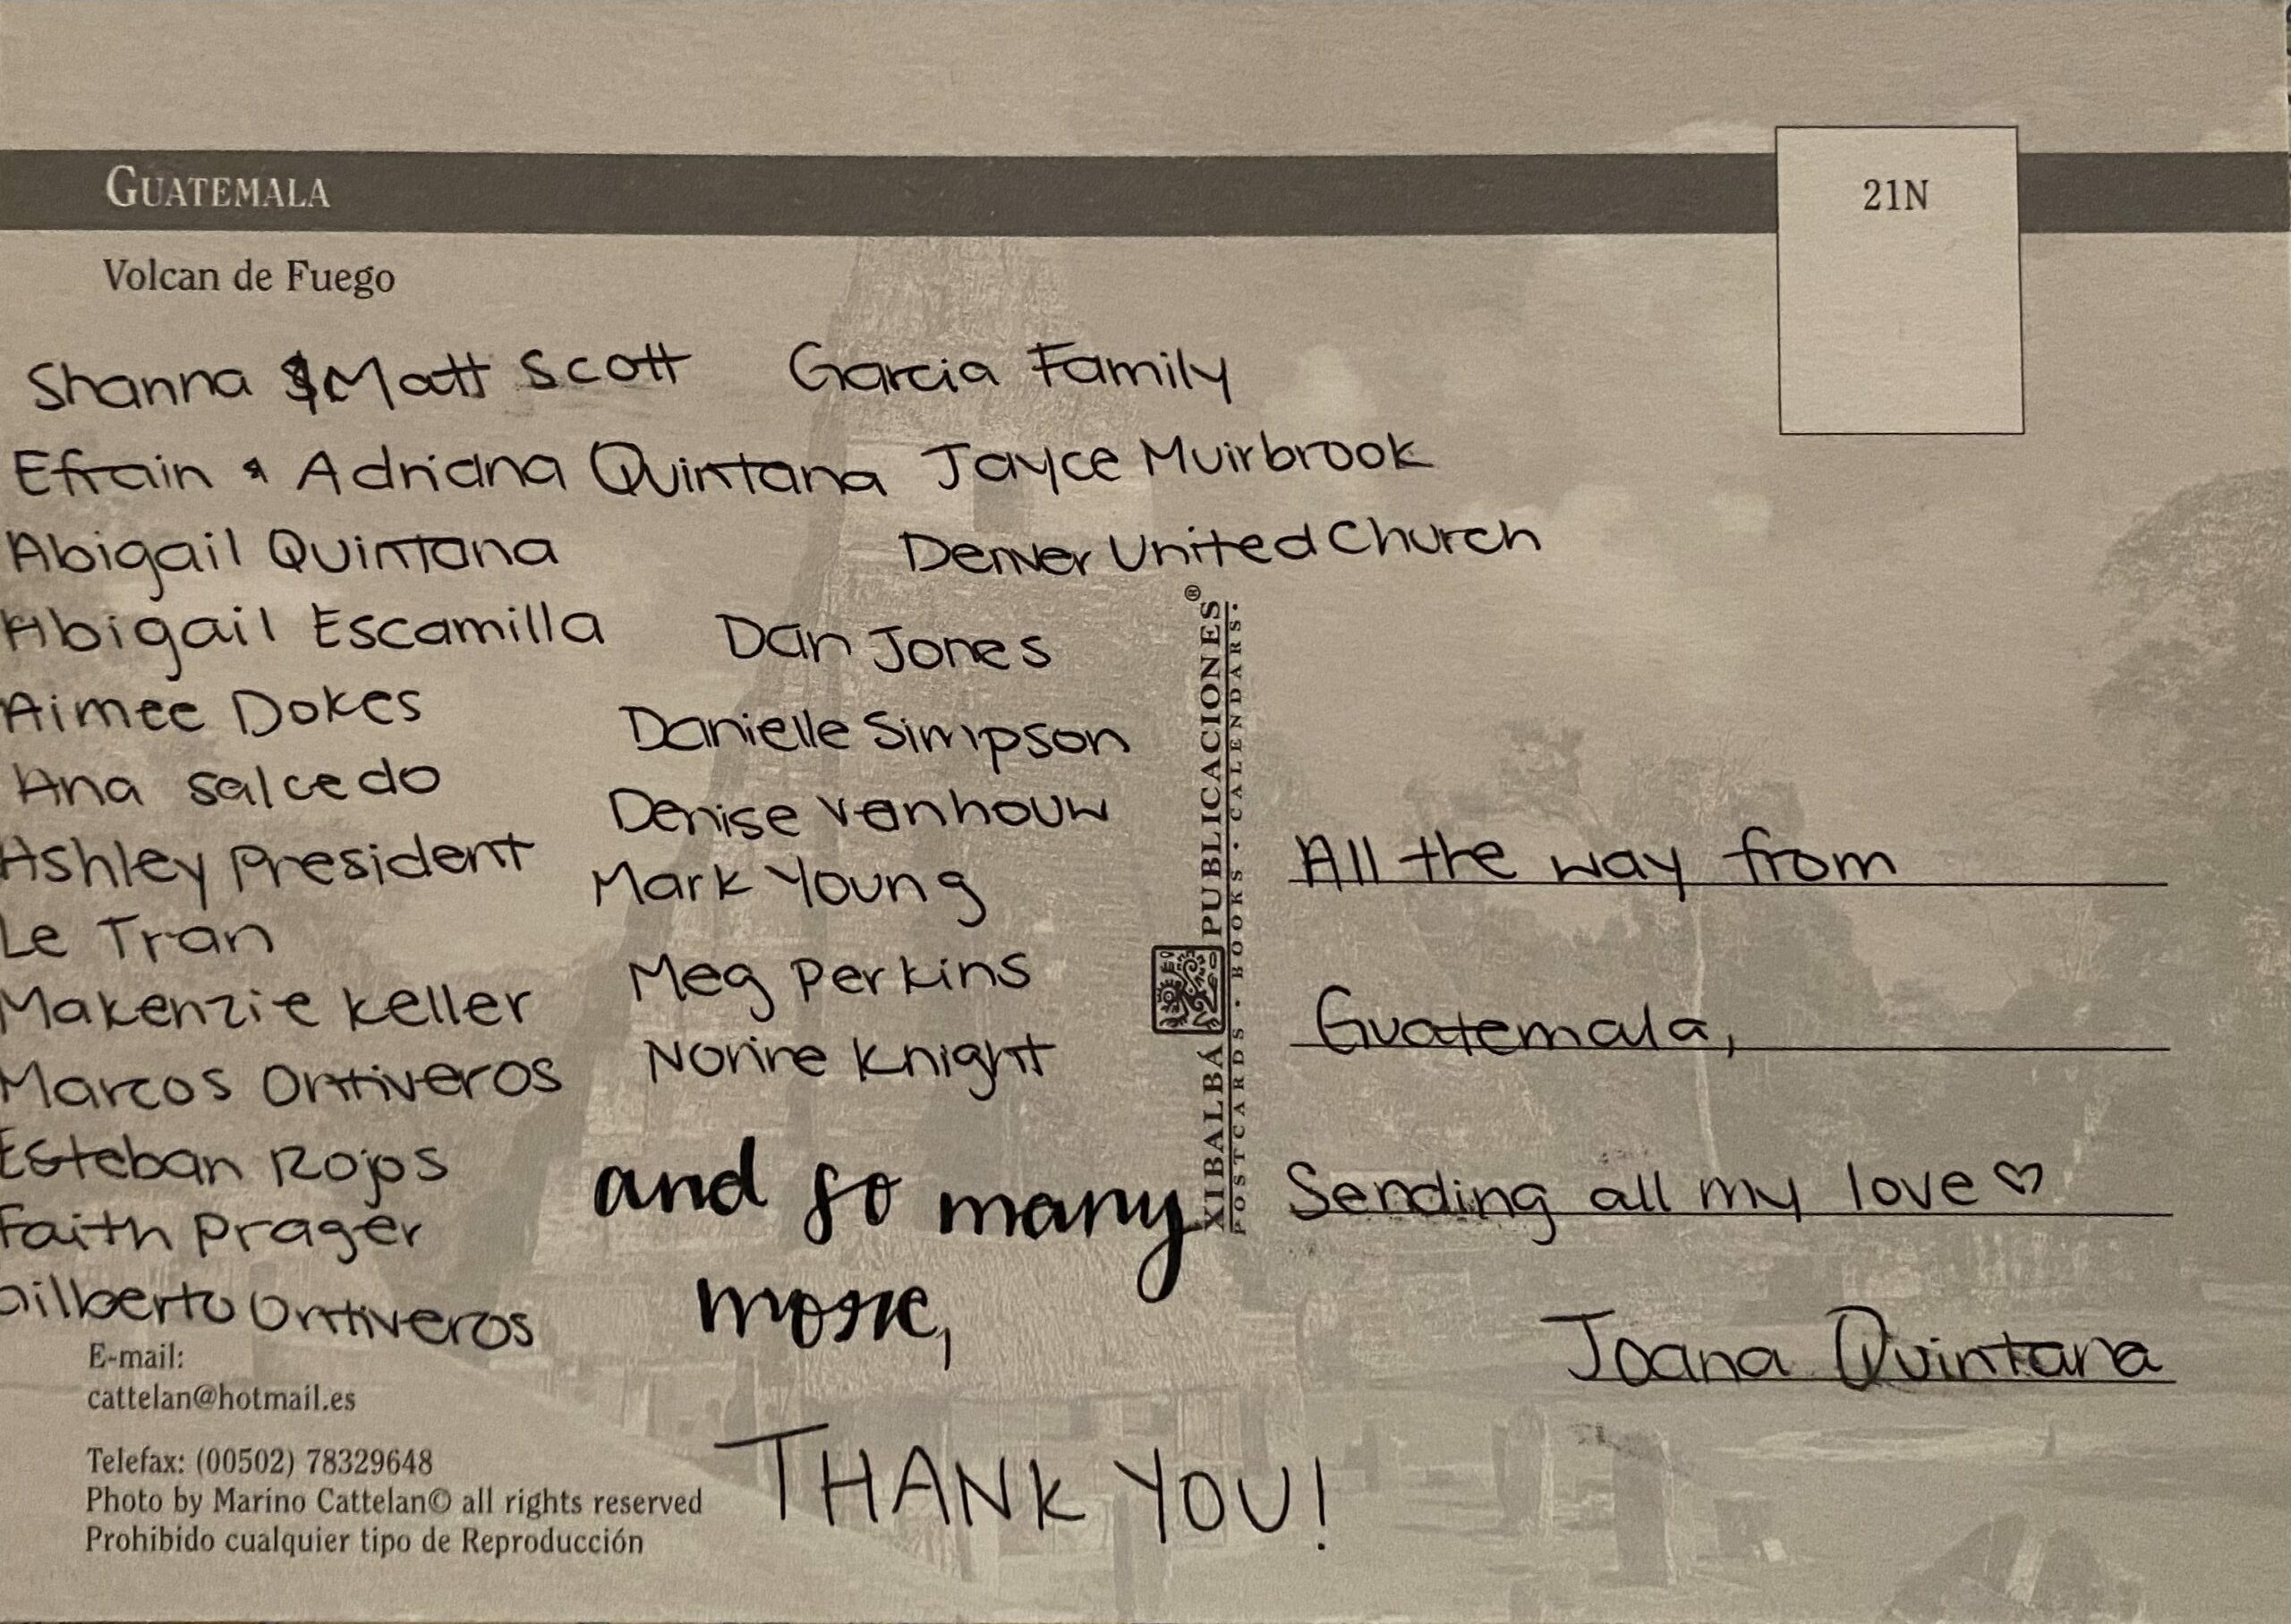 GUATEMALA
21N
Volcan de Fuego
Shanna & Matt Scott
Garcia Family
Efrain & Adriana Quintana
Jayce Muirbrook
Abigail Quintana
Denver United Church
Abigail Escamilla
Dan Jones
Aimee Dokes
Danielle Simpson
Ana Salcedo
Denise Vanhouw
Ashley President
Mark Young
Le Tran
Meg Perkins
Makenzie Keller
Norine Knight
Marcos Ontiveros
Esteban Rojas
Faith Prager
Gilberto Ontiveros
and so many
more,
THANK YOU!
E-mail:
cattelan@hotmail.es
Telefax: (00502) 78329648
Photo by Marino Cattelan© all rights reserved
Prohibido cualquier tipo de Reproducción
XIBALBÁ PUBLICACIONES®
POSTCARDS · BOOKS · CALENDARS·
All the way from
Guatemala,
Sending all my love ♡
Joana Quintana